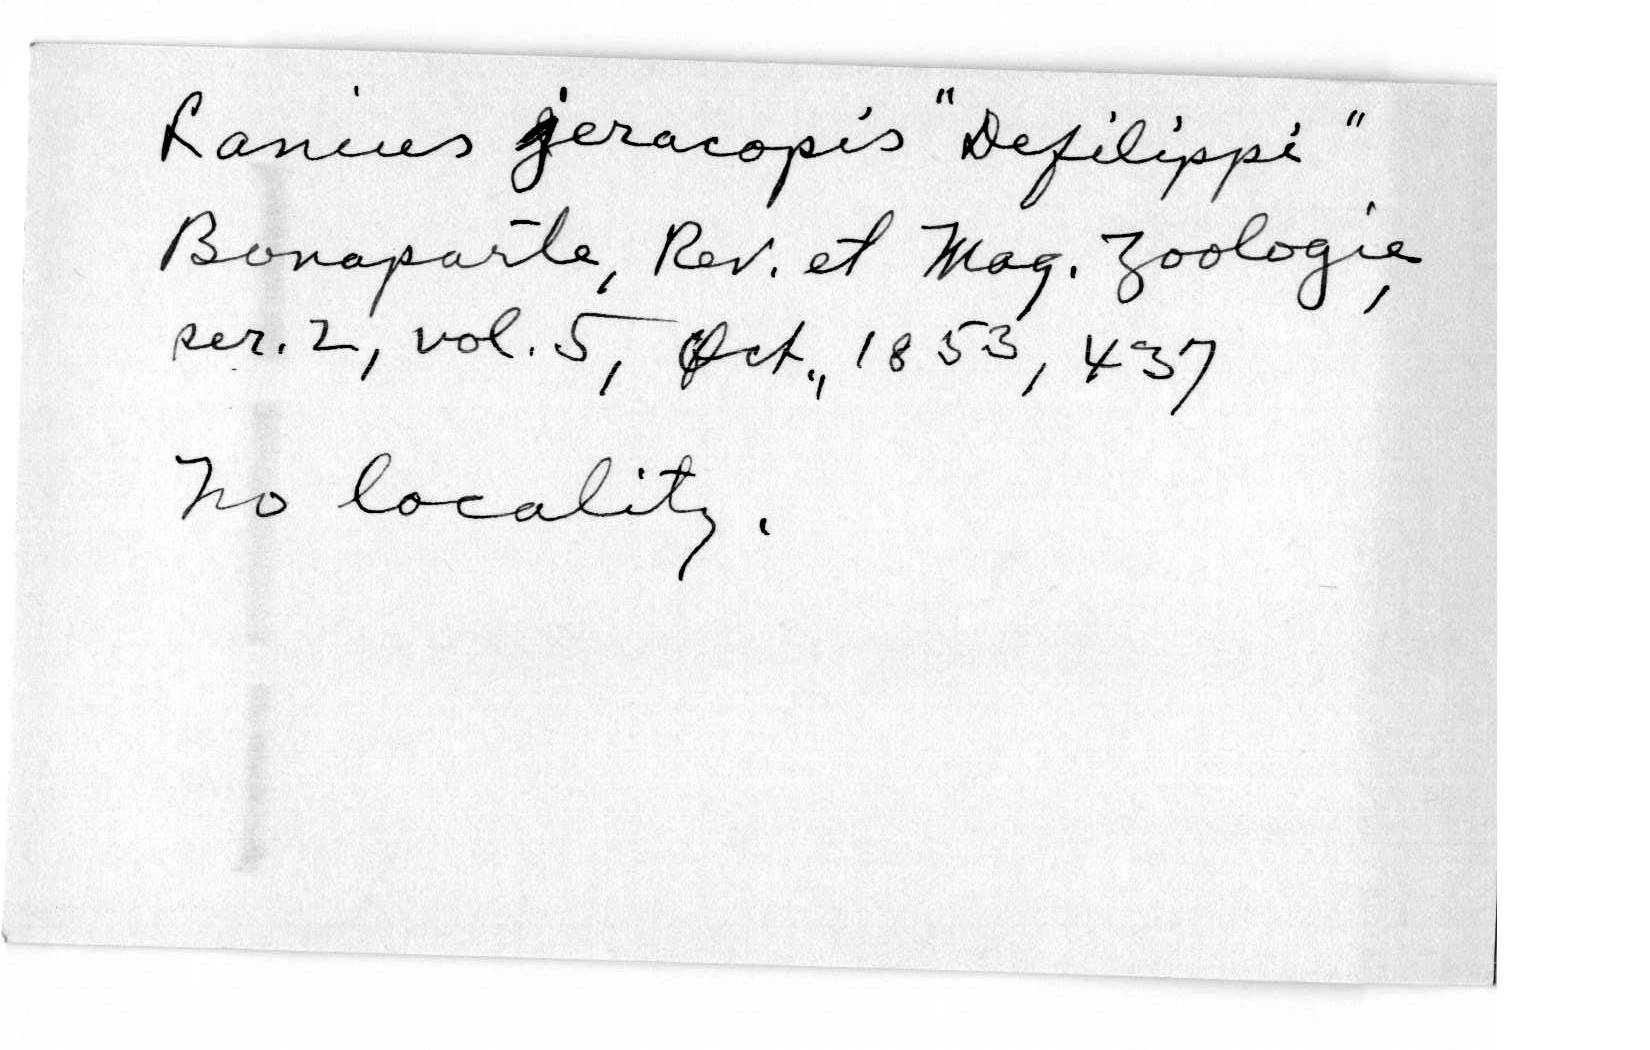 Lanius jeracopis "Defilippi"
Bonaparte, Rev. et Mag. Zoologie,
ser. 2, vol. 5, Oct., 1853, 437
No locality.